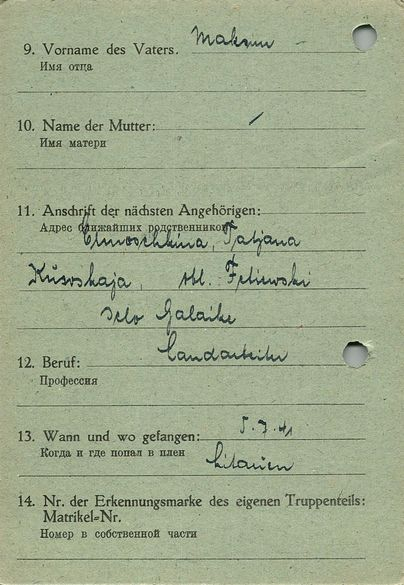 9. Vorname des Vaters. Maksim
Имя отца
10. Name der Mutter: /
Имя матери
11. Anschrift der nächsten Angehörigen:
Адрес ближайших родственников
Tatjana
obl.
Selo Galaike
12. Beruf: Landarbeiter
Профессия
13. Wann und wo gefangen: 5.7.41
Когда и где попал в плен
Litauen
14. Nr. der Erkennungsmarke des eigenen Truppenteils:
Matrikel=Nr.
Номер в собственной части